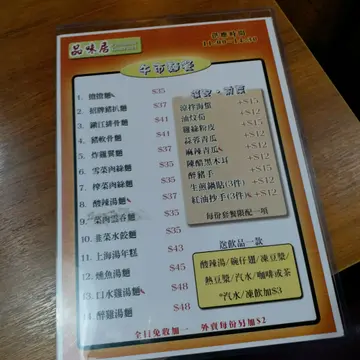 品味居
供應時間
11:00-14:30
午市麵餐
1. 擔擔麵 $35
2. 招牌豬扒麵 $37
3. 鎮江排骨麵 $41
4. 豬軟骨麵 $41
5. 炸雞髀麵 $35
6. 雪菜肉絲麵 $35
7. 榨菜肉絲麵 $35
8. 酸辣湯麵 $35
9. 菜肉雲吞麵 $35
10. 韮菜水餃麵 $37
11. 上海湯年糕 $43
12. 燻魚湯麵 $45
13. 口水雞湯麵 $48
14. 醉雞湯麵 $48
涼拌海蜇 +$15
油炆筍 +$12
雞絲粉皮 +$15
蒜蓉青瓜 +$12
麻辣青瓜 +$12
陳醋黑木耳 +$12
醉豬手 +$15
生煎鍋貼(3件) +$12
紅油抄手(3件) +$12
每份套餐限配一項
送飲品一款
酸辣湯/碗仔翅/凍豆漿/
熱豆漿/汽水/咖啡或茶
*汽水/凍飲加$3
全日免收加一 外賣每份另加$2